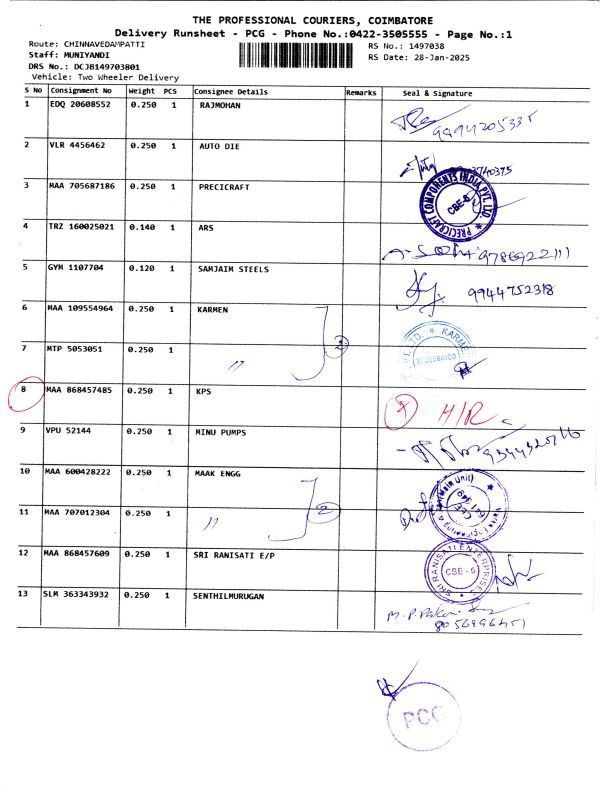 THE PROFESSIONAL COURIERS, COIMBATORE
Delivery Runsheet - PCG - Phone No.:0422-3505555 - Page No.:1
Route: CHINNAVEDAMPATTI
RS No.: 1497038
Staff: MUNIYANDI
RS Date: 28-Jan-2025
DRS No.: DCJB149703801
Vehicle: Two Wheeler Delivery
S No Consignment No Weight PCS Consignee Details Remarks Seal & Signature
1 EDQ 20608552 0.250 1 RAJMOHAN
9994205335
2 VLR 4456462 0.250 1 AUTO DIE
3 MAA 705687186 0.250 1 PRECICRAFT
PRECICRAFT COMPONENTS INDIA PVT. LTD. CBE-6
4 TRZ 160025021 0.140 1 ARS
9786922111
5 GYM 1107704 0.120 1 SAMJAIM STEELS
9944752318
6 MAA 109554964 0.250 1 KARMEN 2
7 MTP 5053051 0.250 1 "
8 MAA 868457485 0.250 1 KPS
H/R
9 VPU 52144 0.250 1 MINU PUMPS
10 MAA 600428222 0.250 1 MAAK ENGG 2
11 MAA 707012304 0.250 1 "
12 MAA 868457609 0.250 1 SRI RANISATI E/P
SRI RANISATI ENTERPRISES CBE-6
13 SLM 363343932 0.250 1 SENTHILMURUGAN
8056896451
PCG